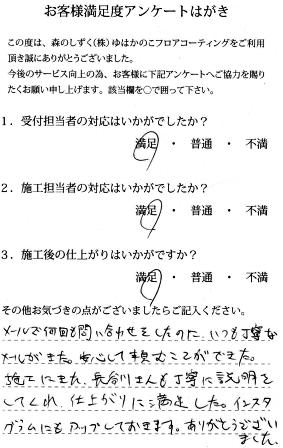 お客様満足度アンケートはがき
この度は、森のしずく(株)ゆはかのこフロアコーティングをご利用
頂き誠にありがとうございました。
今後のサービス向上の為、お客様に下記アンケートへご協力を賜り
たくお願い申し上げます。該当欄を〇で囲って下さい。
1．受付担当者の対応はいかがでしたか？
満足 ・ 普通 ・ 不満
2．施工担当者の対応はいかがでしたか？
満足 ・ 普通 ・ 不満
3．施工後の仕上がりはいかがですか？
満足 ・ 普通 ・ 不満
その他お気づきの点がございましたらご記入ください。
メールで何回も問い合わせをしたのに、いつも丁寧な
メールがきた。安心して頼むことができた。
施工にきた、長谷川さんも丁寧に説明を
してくれ、仕上がりに満足した。インスタ
グラムにもアップしておきます。ありがとうござい
ました。